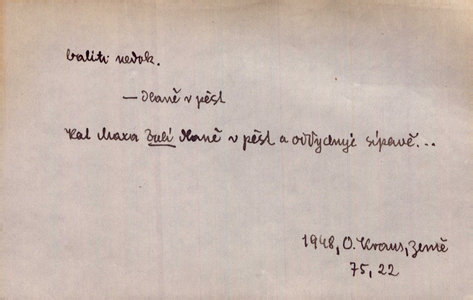 baliti nedok.
— dlaně v pěst
Kat Maxa balí dlaně v pěst a oddychuje sípavě...
1948, O. Kraus, Země
75, 22